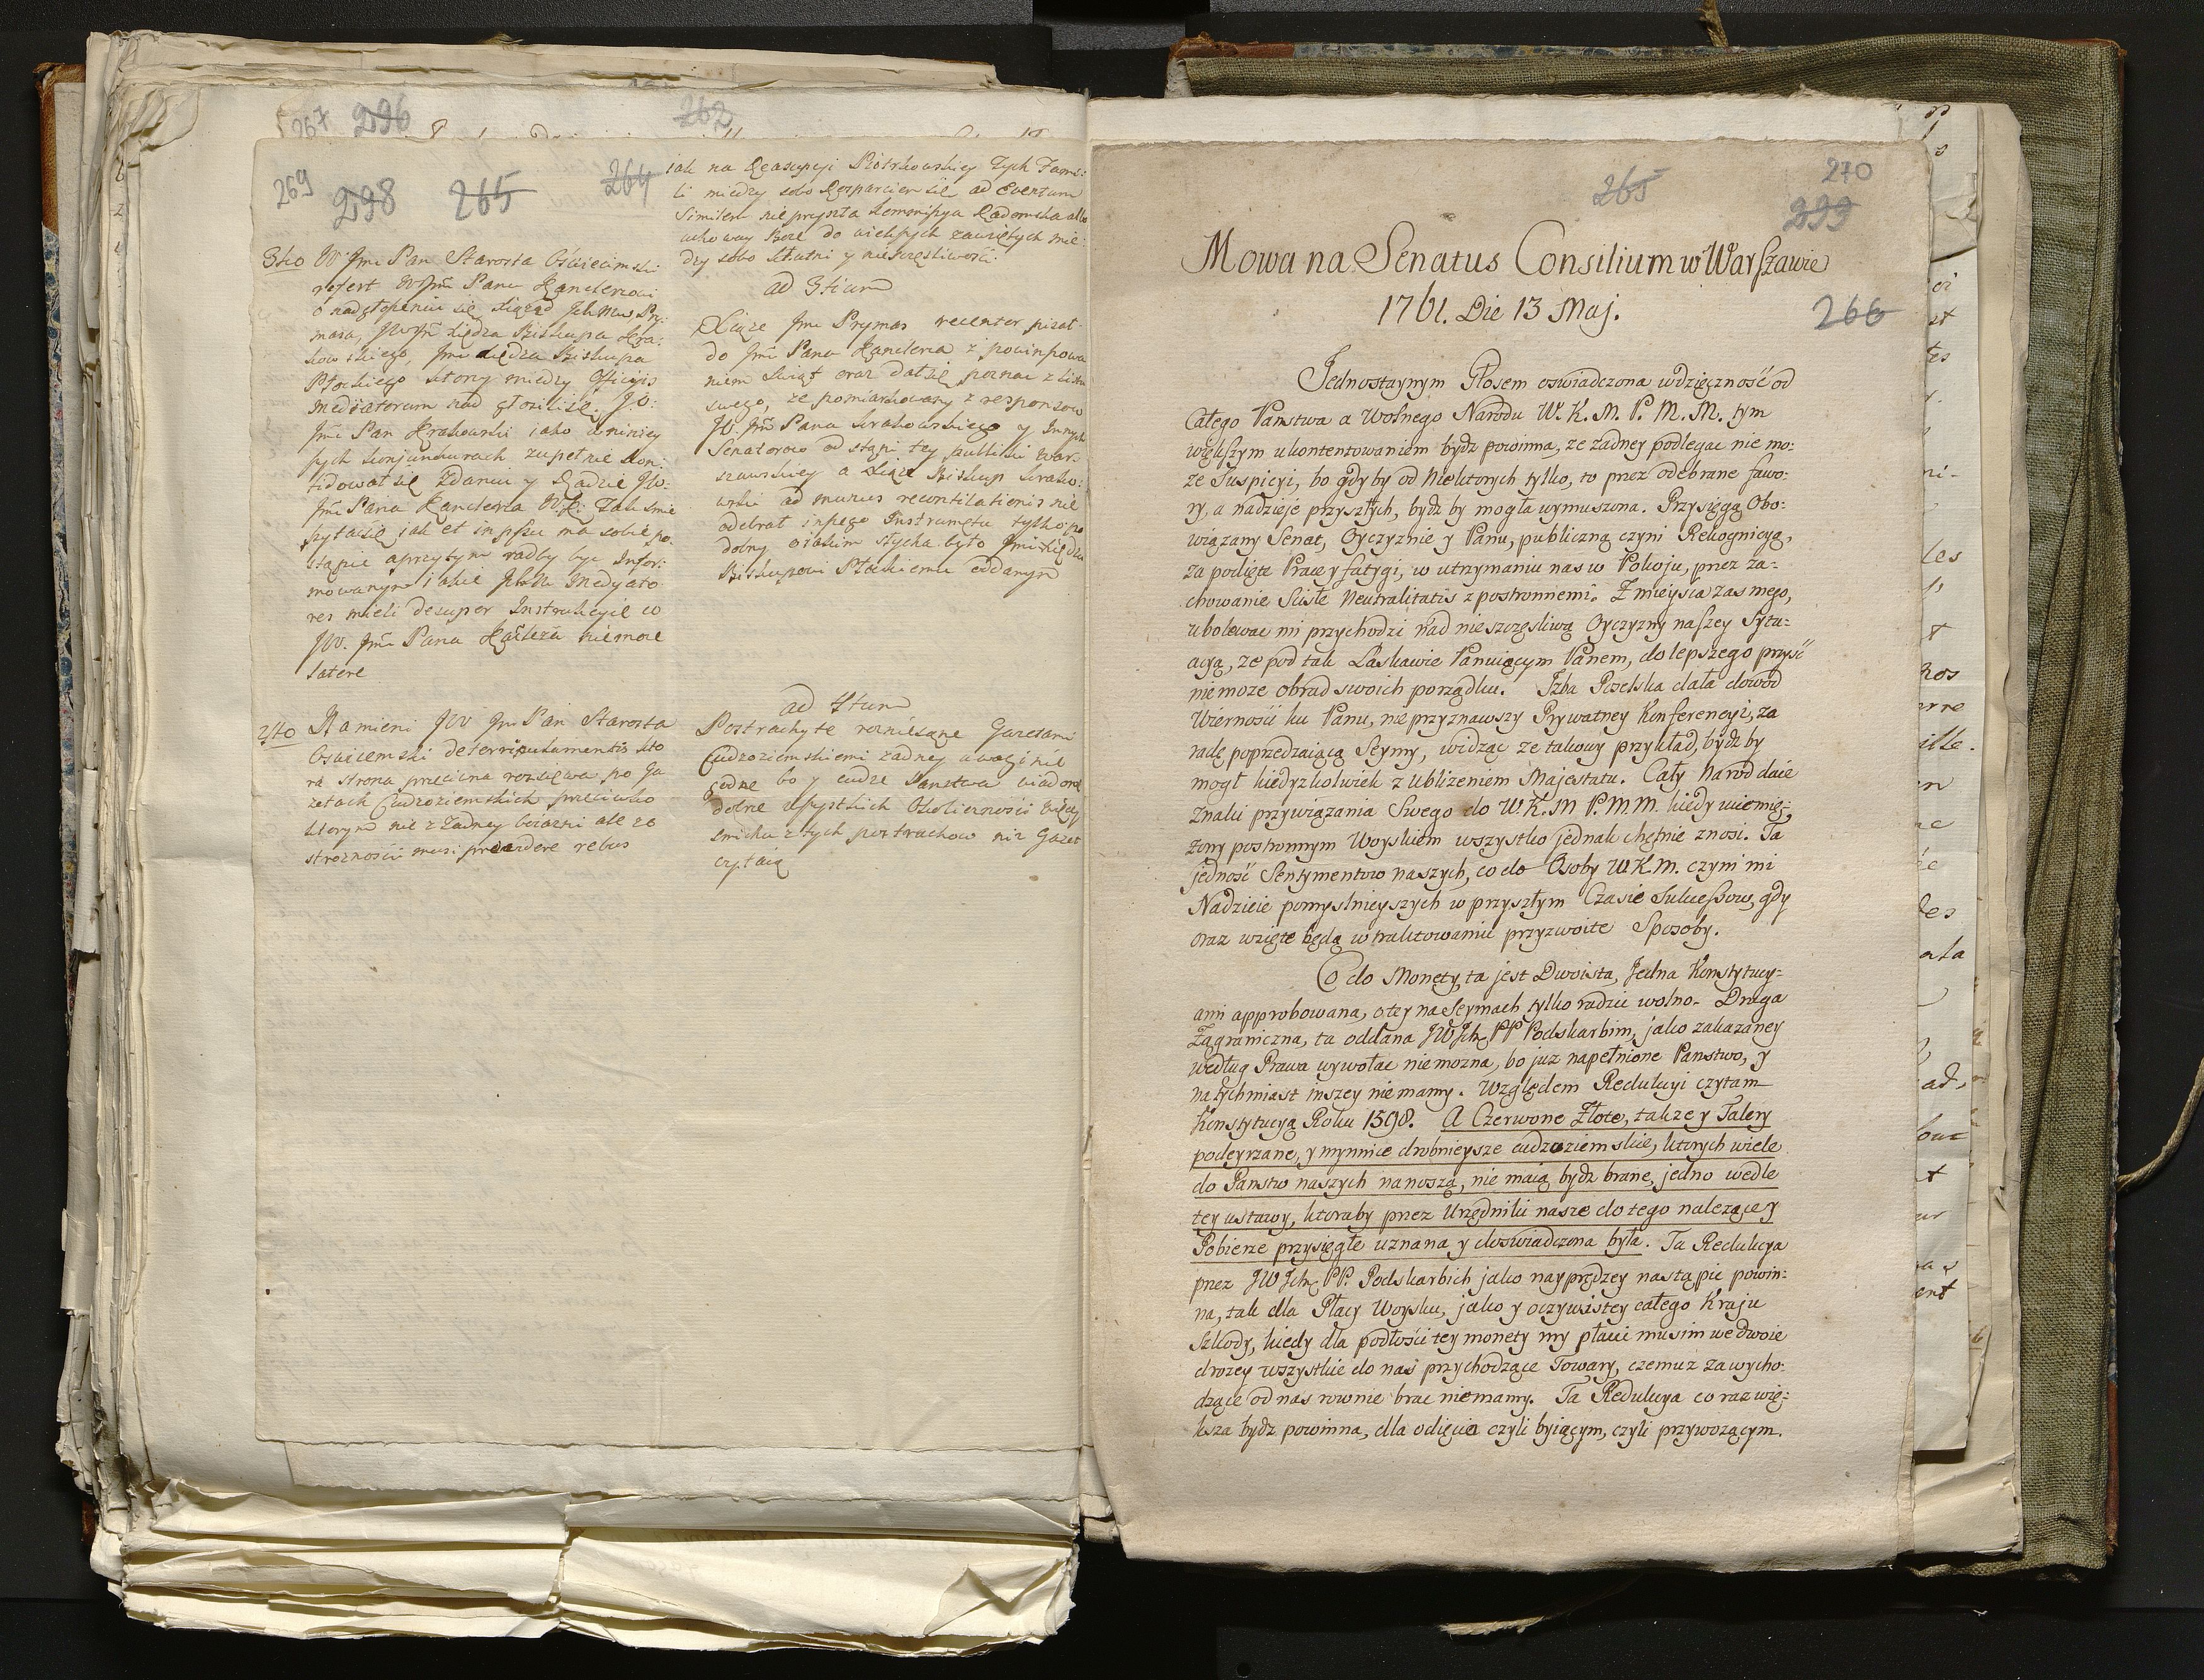 267 296
262
269 298 265 264
3tio W Jmć Pan Starosta Oświecimski
refert WJmć Panu Kanclerzowi
o nadgłopeniu się Xiążąd
masa, JWJmć Xiędza Biskupa Kra:
kowskiego, Jmć Xiędza Biskupa
Płockiego ktory miedzy Officijs
Mediatorum nad J.O.
Jmć Pan Krakowski iako w niniey
szych konjunkturach zupełnie
się zdaniu y Radzie JW:
Jmć Pana Kanclerza
pytać się jak et in ma sobie po
stąpić a przytym radby być Infor:
mowanym iakie Medyato
res mieli desuper Instrukcyie co
JW. Jmć Pana nie moze
latere
4to Namieni JW Jmć Pan Starosta
Oswiecimski kto
ra strona przeciwna rozsiewa po Ga
zetach Cudzoziemskich przeciwko
ktorym nie z zadney boiazni ale z o
stroznosci musi rebus
iak na Reasupcyi Piotrkowskiey Tych Fami:
li miedzy sobo Rozparciem się ad Eventum
Similem nie przyszła kommissya Radomska albo
uchoway Boze do wiekszych zawziętych mie:
dzy sobo kłutni y nieszczęśliwości.
ad 3tium
Xiąze Jmć Prymas recenter pisał
do Jmć Pana Kanclerza z powinszowa
niem Swiąt oraz dał się poznac z listu
swego, ze pomiarkowany z responsow
JW. Jmć Pana Krakowskiego y Innych
Senatorow od stąpi tey publiki War:
szawskiey a Xiąze Biskup Krako:
wski ad munus recontilationis nie
odebrał inszego Instrumętu tylko po
dobny o iakim słychac było Jmć Xiędzu
Biskupowi Płockiemu oddanym
ad 4tum
Postrachy te roznieszone Gazetami
Cudzoziemskiemi zadney uwagi nie
godne bo y cudze Panstwa wiadome
dobrze wszystkich Okolicznosci więcey
smiechu z tych postrachow niz Gazet
czytaią
265
270
299
266
Mowa na Senatus Consilium w Warszawie
1761. Die 13 Maj.
Jednostaynym Głosem oswiadczona wdzięczność od
Całego Panstwa a Wolnego Narodu W. K. M. P. M. M. tym
większym ukontentowaniem bydz powinna, ze zadney podlegac nie mo:
ze Suspicyi, bo gdyby od Niektorych tylko, to przez odebrane fawo:
ry, a nadzieje przyszłych, bydz by mogła wymuszona. Przysięgą Obo:
wiązany Senat, Oyczyznie y Panu, publiczną czyni Rekognicyą,
za podięte Prace y fatygi, w utrzymaniu nas w Pokoju, przez za-
chowanie Scisłe Neutralitatis z postronnemi. Z mieysca zas mego,
ubolewac mi przychodzi nad nieszczęsliwą Oyczyzny naszey Sytu-
acyą, ze pod tak Łaskawie Panuiącym Panem, do lepszego przyść
niemoze obrad swoich porządku. Izba Poselska dała dowod
Wierności ku Panu, nie przyznawszy Prywatney Konferencyi, za
radę poprzedzaiącą Seymy, widząc ze takowy przykład, bydz by
mogł kiedyzkolwiek z ublizeniem Majestatu. Cały Narod daie
Znaki przywiązania Swego do W.K.M P.M.M. kiedy uciemię-
zony postronnym Woyskiem wszystko jednak chętnie znosi. Ta
jedność Sentymentow naszych, co do Osoby W.K.M. czyni mi
Nadzieie pomyslnieyszych w przyszłym Czasie Sukcessow, gdy
oraz wzięte będą w traktowaniu przyzwoite Sposoby.
Co do Monety, ta jest Dwoista, Jedna Konstytucy-
ami approbowana, o tey na Seymach tylko radzic wolno. Druga
Zagraniczna, ta oddana JWJch PP Podskarbim, jako zakazaney
według Prawa wywołac niemozna, bo juz napełnione Panstwo, y
natychmiast inszey niemamy. Względem Redukcyi czytam
Konstytucyą Roku 1598. A Czerwone Złote, takze y Talery
podeyrzane, y mynnice drobnieysze cudzoziemskie, ktorych wiele
do Panstw naszych nanoszą, nie maią bydz brane, jedno wedle
tey ustawy, ktoraby przez Urzędniki nasze do tego nalezące y
Pobierze przysięgłe uznana y doswiadczona była. Ta Redukcya
przez JWJch PP. Podskarbich jako nayprędzey nastąpic powin:
na, tak dla Płacy Woysku, jako y oczywistey całego Kraju
Szkody, kiedy dla podłości tey monety my płacic musim we dwoie
drozey wszystkie do nas przychodzące Towary, czemuz za wycho-
dzące od nas rownie brac niemamy. Ta Redukcya co raz wię-
ksza bydz powinna, dla odięcia czyli byiącym, czyli przywozącym.